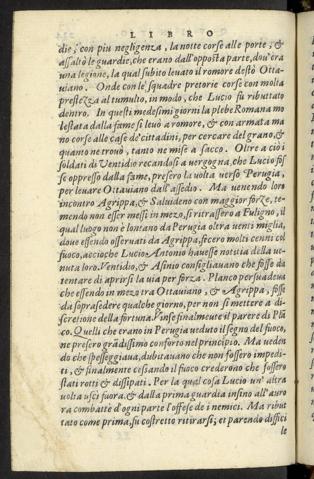 LIBRO
die, con piu negligenza, la notte corse alle porte, &
assaltò le guardie, che erano dall'opposta parte, dou'era
una legione, la qual subito leuato il romore destò Otta-
uiano. Onde con le squadre pretorie corse con molta
prestezza al tumulto, in modo, che Lucio fu ributtato
dentro. In questi medesimi giorni la plebe Romana mo
lestata dalla fame si leuò a romore, & con armata ma
no corse alle case de' cittadini, per cercare del grano, &
quanto ne trouò, tanto ne mise a sacco. Oltre a ciò i
soldati di Ventidio recandosi a vergogna, che Lucio fos
se oppresso dalla fame, presero la uolta uerso Perugia,
per leuare Ottauiano dall'assedio. Ma uenendo loro
incontro Agrippa, & Saluideno con maggior forze, te-
mendo non esser messi in mezo, si ritrassero a Fuligno, il
qual luogo non è lontano da Perugia oltra uenti miglia,
doue essendo osseruati da Agrippa, fecero molti cenni col
fuoco, accioche Lucio Antonio hauesse notitia della ue-
nuta loro. Ventidio, & Asinio consigliauano che fosse da
tentare di aprirsi la uia per forza. Planco persuadeua
che essendo in mezo tra Ottauiano, & Agrippa, fosse
da soprasedere qualche giorno, per non si mettere a di-
scretione della fortuna. Vinse finalmente il parere di Plā
co. Quelli che erano in Perugia ueduto il segno del fuoco,
ne presero grādissimo conforto nel principio. Ma ueden
do che spesseggiaua, dubitauano che non fossero impedi-
ti, & finalmente cessando il fuoco crederono che fossero
stati rotti & dissipati. Per la qual cosa Lucio un' altra
uolta uscì fuora, & dalla prima guardia insino all'auro
ra combattè d'ogni parte l'offese de i nemici. Ma ribut
tato come prima, fu costretto ritirarsi; et parendo diffici
le